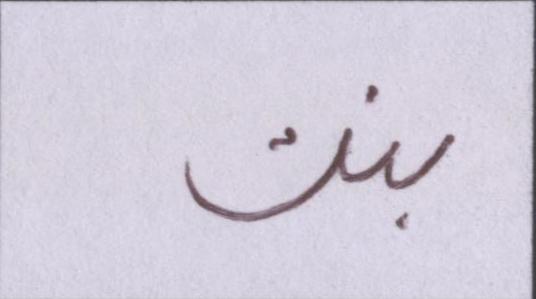 بنت